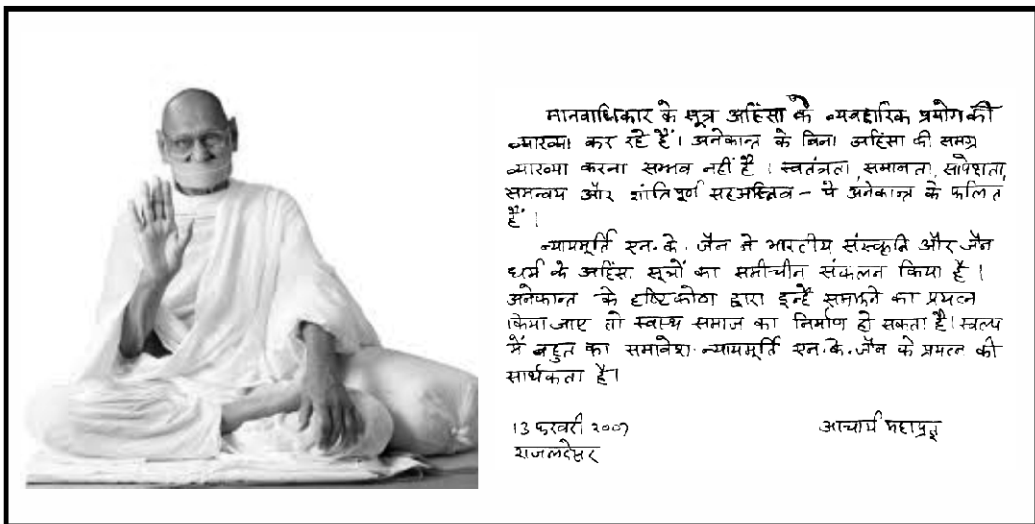 मानवाधिकार के सूत्र अहिंसा के व्यवहारिक प्रयोग की
व्याख्या कर रहे हैं। अनेकान्त के बिना अहिंसा की समग्र
व्याख्या करना सम्भव नहीं है। स्वतंत्रता, समानता, सापेक्षता,
समन्वय और शांतिपूर्ण सहअस्तित्व - ये अनेकान्त के फलित
हैं।
न्यायमूर्ति एन. के. जैन ने भारतीय संस्कृति और जैन
धर्म के अहिंसा सूत्रों का समीचीन संकलन किया है।
अनेकान्त के दृष्टिकोण द्वारा इन्हें समझने का प्रयत्न
किया जाए तो स्वस्थ समाज का निर्माण हो सकता है। स्वल्प
में बहुत का समावेश न्यायमूर्ति एन. के. जैन के प्रयत्न की
सार्थकता है।
13 फरवरी २००७
आचार्य महाप्रज्ञ
राजलदेसर